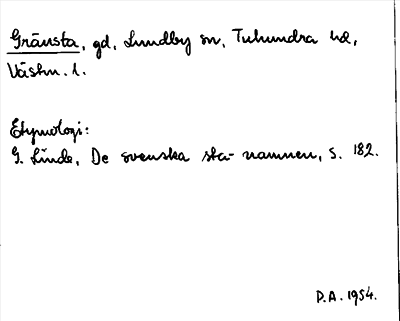 Gränsta, gd, Lundby sn, Tuhundra hd,
Västm. l.
Etymologi:
G. Linde, De svenska sta-namnen, s. 182.
D.A. 1954.